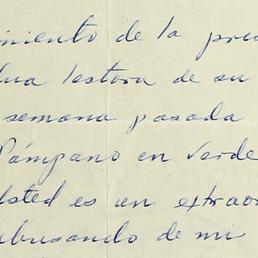 imiento de la prec
tua lectora de su
semana pasada
Pámpano en verde
Usted es un extraor
abusando de mi